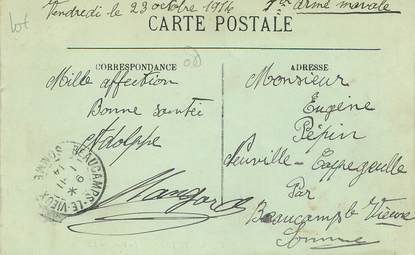 lot
Vendredi le 23 octobre 1914 1er armé navale
CARTE POSTALE
CORRESPONDANCE
ADRESSE
Mille affection
Bonne santée
Adolphe
Mangard
Monsieur
Eugène
Pépin
Neuville-Coppegeulle
Par
Beaucamps le Vieux
Somme
BEAUCAMPS-LE-VIEUX
SOMME